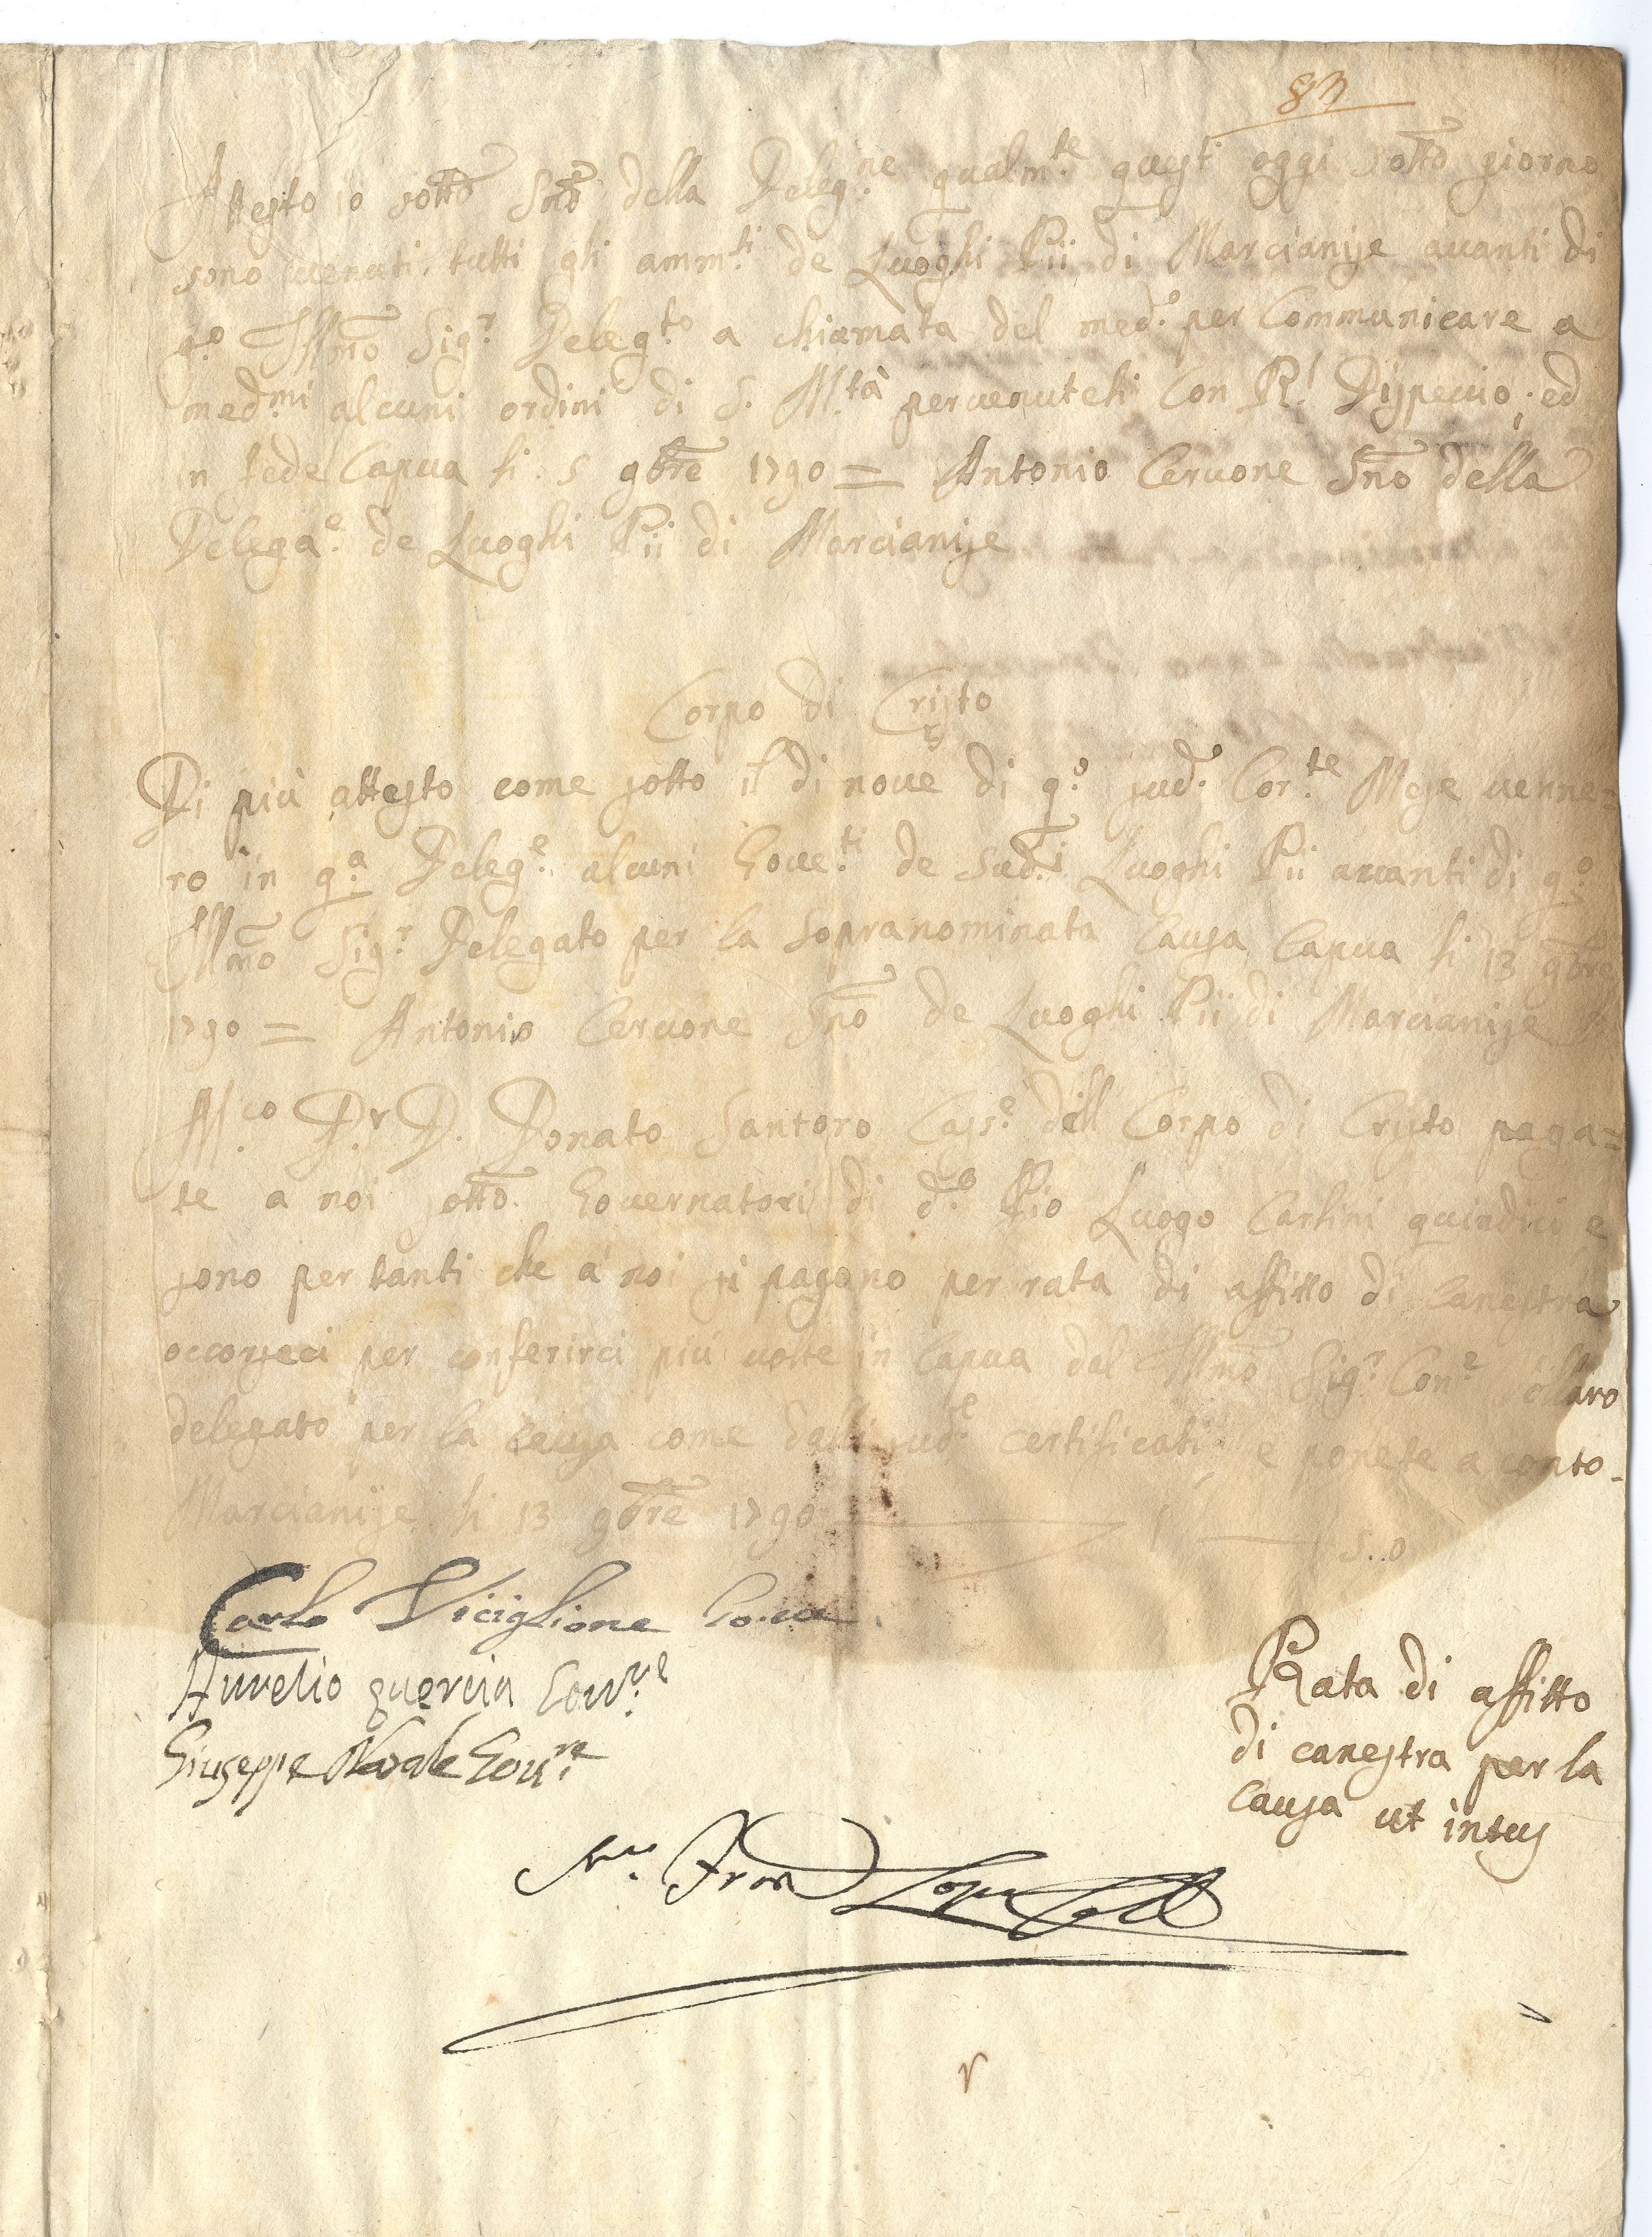 83
Attesto io sotto Sno della Deleg.ne qualm.te quest' oggi sotto giorno
sono venuti tutti gli amm.ti de Luoghi Pii di Marcianise avanti di
q.o Illmo Sig.r Deleg.to a chiamata del med.o per Communicare a
med.mi alcuni ordini di S. M.tà pervenuteli Con R.l Dispaccio; ed
in fede Capua li 5 9bre 1790 = Antonio Cervone Sno della
Delega.e de Luoghi Pii di Marcianise
Corpo di Cristo
Di più attesto come sotto il dì nove di q.o sud.o Cor.te Mese venne=
ro in q.a Deleg.e alcuni Gove.ti de sud.i Luoghi Pii avanti di q.o
Illmo Sig.r Delegato per la sopranominata Causa Capua li 13 9bre
1790 = Antonio Cervone Sno de Luoghi Pii di Marcianise
M.co D.r D. Donato Santoro Cass.e dell Corpo di Cristo paga=
te a noi sotto. Governatori di d.o Pio Luogo Carlini quindici e
sono per tanti che a noi si pagano per rata di affitto di canestra
occorseci per conferirci più volte in Capua dal Illmo Sig.r Con.e
delegato per la causa come dalli sud.e certificati e ponete a conto.
Marcianise li 13 9bre 1790 1 S..0
Carlo Viciglione Gover
Aurelio quercia Gov.re
Giuseppe Novale Gov.re
Rata di affitto
di canestra per la
causa ut intus